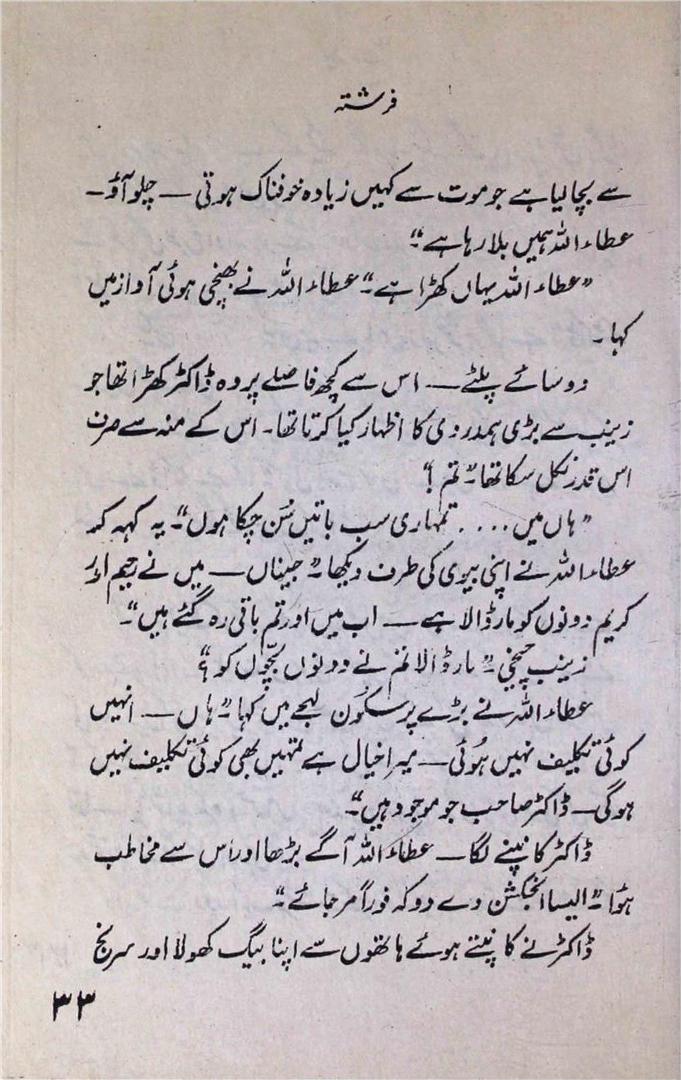 فرشتہ
سے بچا لیا ہے جو موت سے کہیں زیادہ خوفناک ہوتی — چلو آؤ —
عطاء اللہ ہمیں بلا رہا ہے“
”عطاء اللہ یہاں کھڑا ہے“ عطاء اللہ نے بھنچی ہوئی آواز میں
کہا۔
دو سائے پلٹے — اس سے کچھ فاصلے پر وہ ڈاکٹر کھڑا تھا جو
زینب سے بڑی ہمدردی کا اظہار کیا کرتا تھا۔ اس کے منہ سے صرف
اس قدر نکل سکا تھا ”تم!“
”ہاں میں .... تمہاری سب باتیں سُن چکا ہوں“ یہ کہہ کر
عطاء اللہ نے اپنی بیوی کی طرف دیکھا ”جیناں — میں نے رحیم اور
کریم دونوں کو مار ڈالا ہے — اب میں اور تم باقی رہ گئے ہیں“۔
زینب چیخی ”مار ڈالا تم نے دونوں بچّوں کو؟“
عطاء اللہ نے بڑے پرسکُون لہجے میں کہا ”ہاں — انہیں
کوئی تکلیف نہیں ہُوئی — میرا خیال ہے تمہیں بھی کوئی تکلیف نہیں
ہوگی — ڈاکٹر صاحب جو موجود ہیں“۔
ڈاکٹر کانپنے لگا — عطاء اللہ آگے بڑھا اور اس سے مخاطب
ہُوا ”ایسا انجکشن دے دو کہ فوراً مر جائے“
ڈاکٹر نے کانپتے ہوئے ہاتھوں سے اپنا بیگ کھولا اور سرنج
۳۳